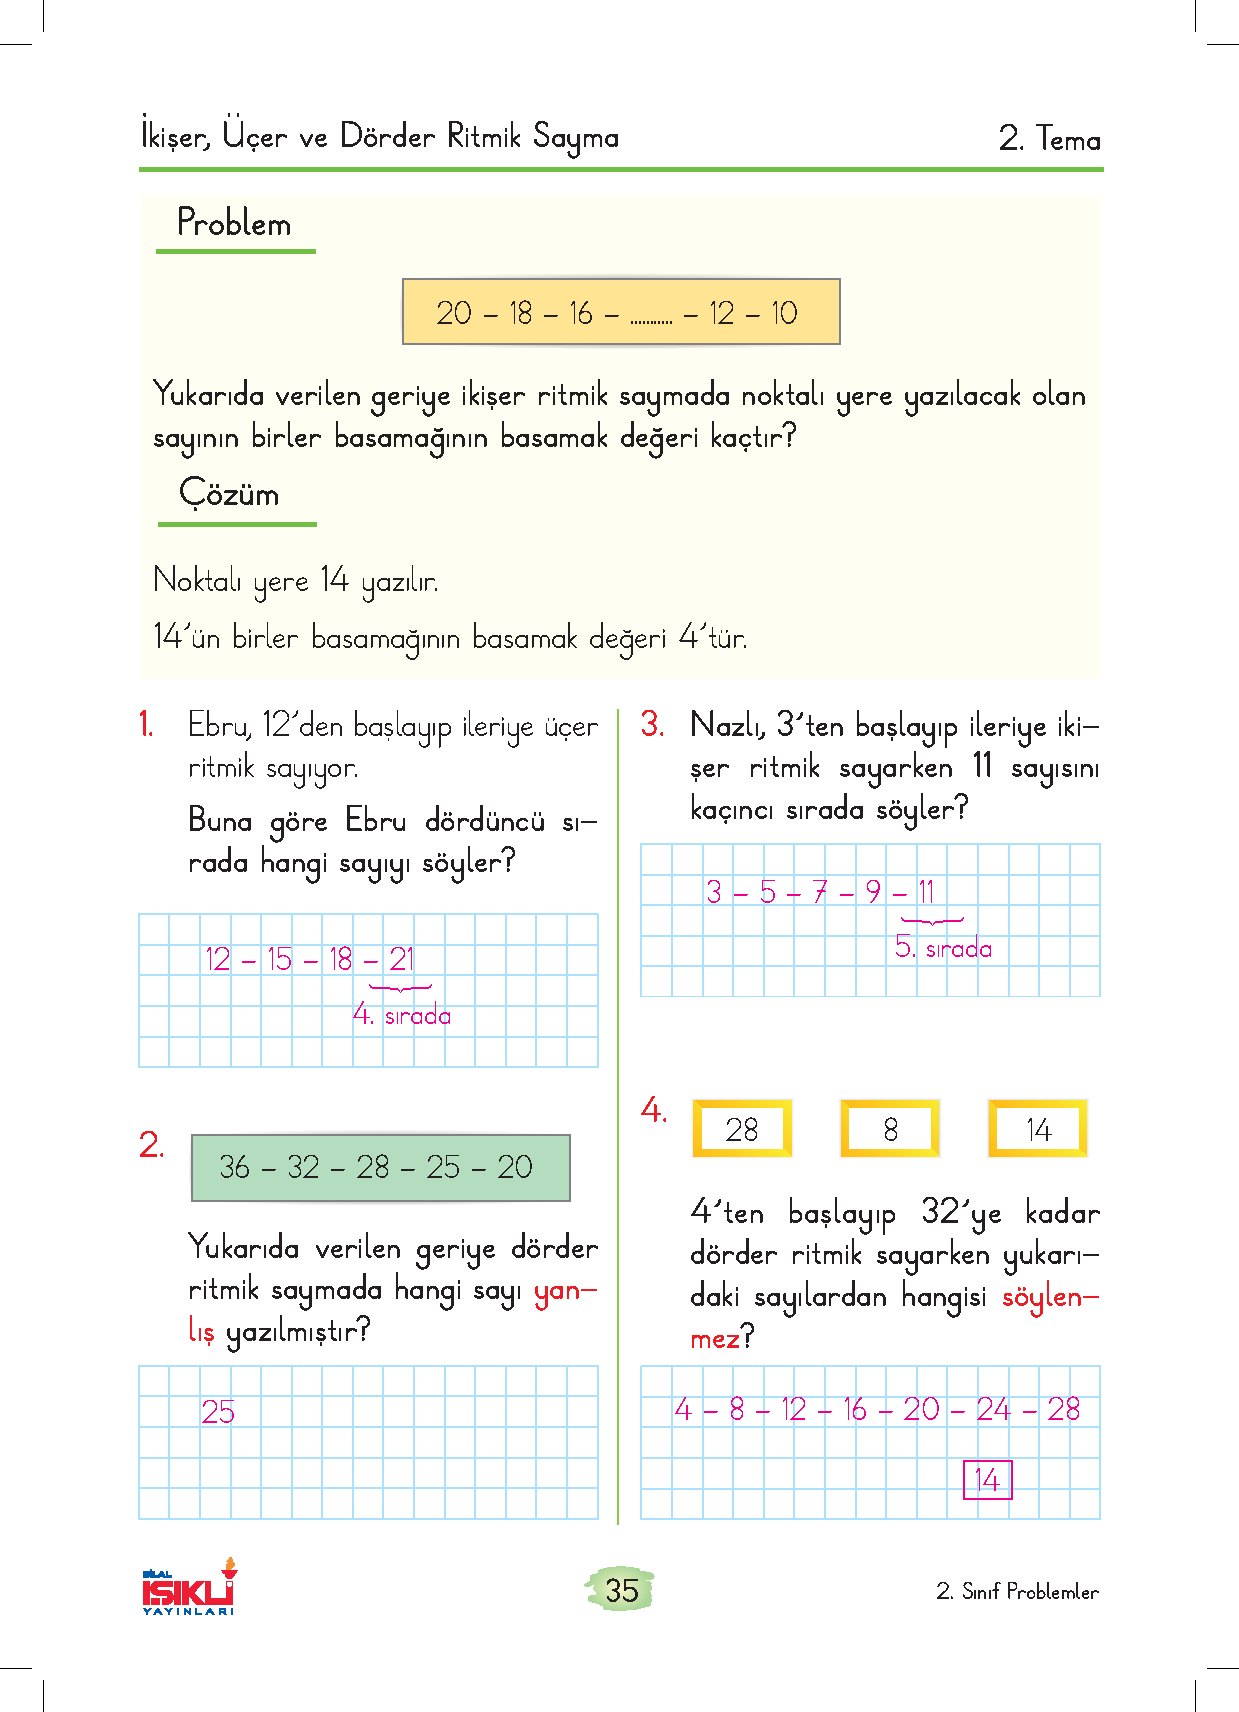 İkişer, Üçer ve Dörder Ritmik Sayma
2. Tema
Problem
20 – 18 – 16 – ........... – 12 – 10
Yukarıda verilen geriye ikişer ritmik saymada noktalı yere yazılacak olan
sayının birler basamağının basamak değeri kaçtır?
Çözüm
Noktalı yere 14 yazılır.
14’ün birler basamağının basamak değeri 4’tür.
1. Ebru, 12’den başlayıp ileriye üçer
ritmik sayıyor.
Buna göre Ebru dördüncü sı-
rada hangi sayıyı söyler?
12 – 15 – 18 – 21
4. sırada
2.
36 – 32 – 28 – 25 – 20
Yukarıda verilen geriye dörder
ritmik saymada hangi sayı yan-
lış yazılmıştır?
25
3. Nazlı, 3’ten başlayıp ileriye iki-
şer ritmik sayarken 11 sayısını
kaçıncı sırada söyler?
3 – 5 – 7 – 9 – 11
5. sırada
4.
28 8 14
4’ten başlayıp 32’ye kadar
dörder ritmik sayarken yukarı-
daki sayılardan hangisi söylen-
mez?
4 – 8 – 12 – 16 – 20 – 24 – 28
14
BİLAL
IŞIKLI
YAYINLARI
35
2. Sınıf Problemler